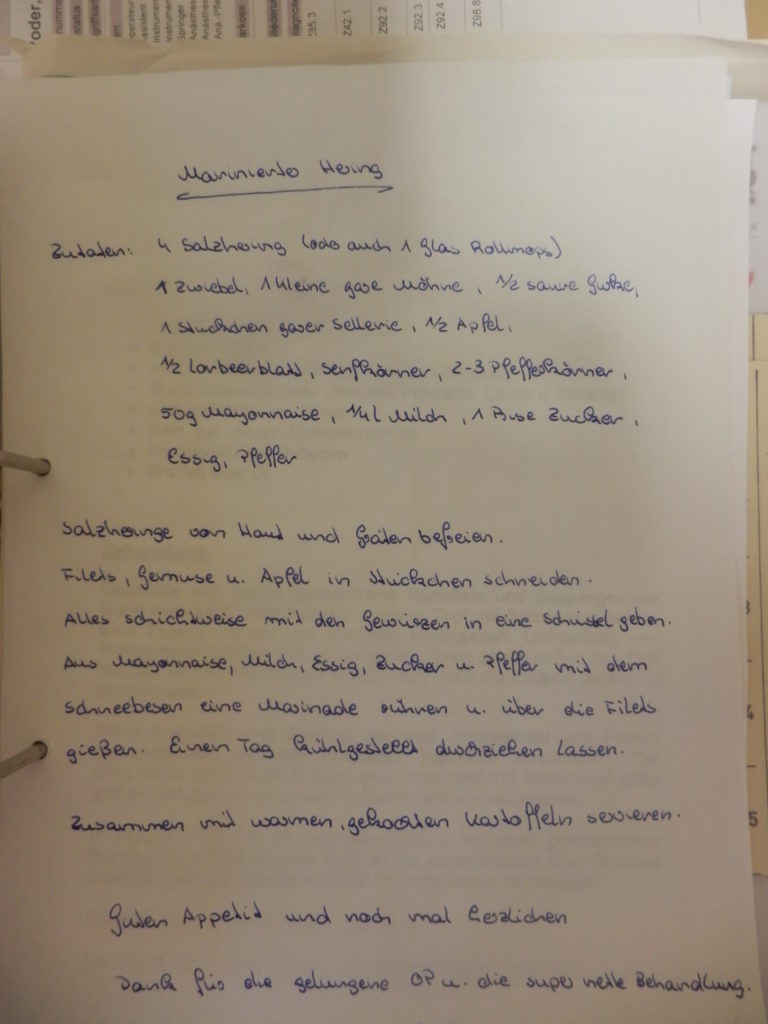 oder,
Z42.1
Z92.2
Z92.3
Z92.4
Z98.8
Marinierter Hering
Zutaten: 4 Salzhering (oder auch 1 Glas Rollmops)
1 Zwiebel, 1 kleine gare Möhne, 1/2 saure Gurke,
1 Stückchen garer Sellerie, 1/2 Apfel,
1/2 Lorbeerblatt, Senfkörner, 2-3 Pfefferkörner,
50g Mayonnaise, 1/4 l Milch, 1 Prise Zucker,
Essig, Pfeffer
Salzheringe von Haut und Gräten befreien.
Filets, Gemüse u. Apfel in Stückchen schneiden.
Alles schichtweise mit den Gewürzen in eine Schüssel geben.
Aus Mayonnaise, Milch, Essig, Zucker u. Pfeffer mit dem
Schneebesen eine Marinade rühren u. über die Filets
gießen. Einen Tag kühlgestellt durchziehen lassen.
Zusammen mit warmen, gekochten Kartoffeln servieren.
Guten Appetit und noch mal herzlichen
Dank für die gelungene OP u. die super nette Behandlung.